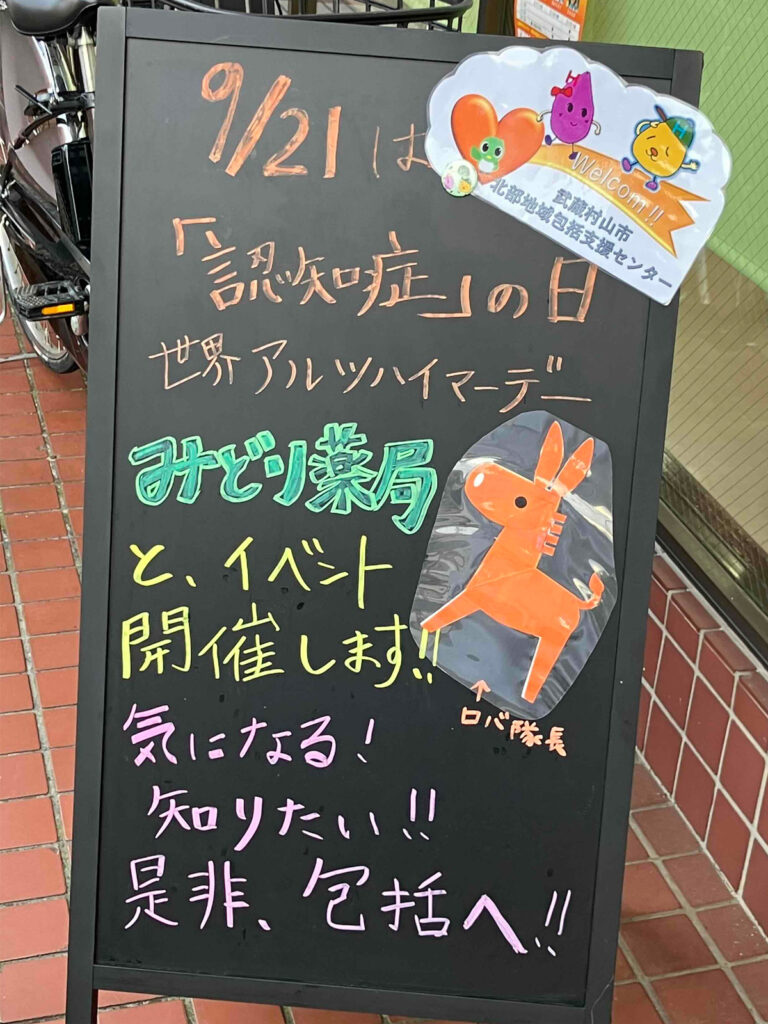 9/21は
Welcom!!
武蔵村山市
北部地域包括支援センター
「認知症」の日
世界アルツハイマーデー
みどり薬局
と、イベント
開催します!!
↑
ロバ隊長
気になる!
知りたい!!
是非、包括へ!!